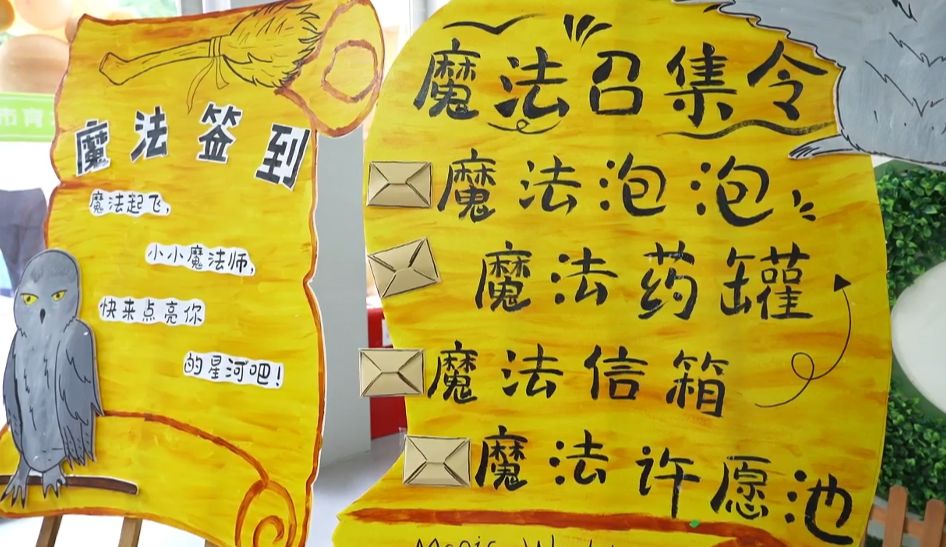 魔法签到
魔法起飞,
小小魔法师,
快来点亮你
的星河吧!
魔法召集令
魔法泡泡
魔法药罐
魔法信箱
魔法许愿池